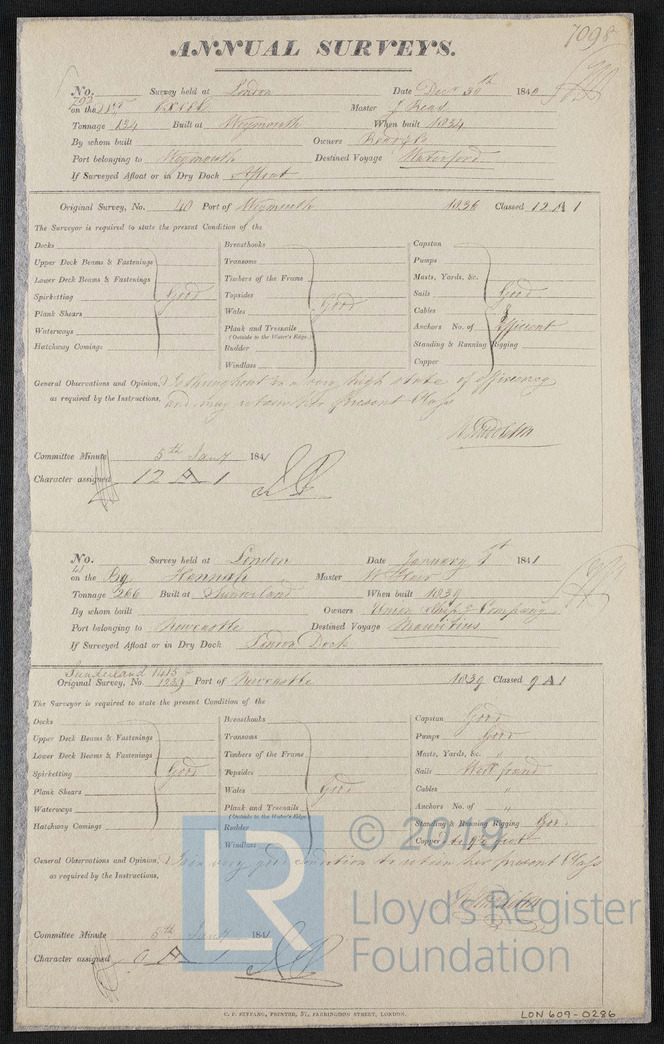 7098
ANNUAL SURVEYS.
No. 792 Survey held at London Date Decr 30th 1840
on the Master J Read
Tonnage 134 Built at Weymouth When built 1834
By whom built Owners
Port belonging to Weymouth Destined Voyage Waterford
If Surveyed Afloat or in Dry Dock Afloat
Original Survey, No. 40 Port of Weymouth 1836 Classed 12 A 1
The Surveyor is required to state the present Condition of the
Decks Breasthooks Capstan
Upper Deck Beams & Fastenings Transoms Pumps
Lower Deck Beams & Fastenings Timbers of the Frame Masts, Yards, &c.
Spirketting Good Topsides Sails Good
Plank Shears Wales Good Cables &
Waterways Plank and Treenails Anchors No. of Efficient
(Outside to the Water's Edge)
Hatchway Comings Rudder Standing & Running Rigging
Windlass Copper
General Observations and Opinion, Is throughout in a very high state of efficiency
as required by the Instructions, and may retain her present Class
Committee Minute 5th Jany 1841
Character assigned 12 A 1
No. 41 Survey held at London Date January 1st 1841
on the Bg Hannah Master
Tonnage 266 Built at Sunderland When built 1839
By whom built Owners Union Ship Company
Port belonging to Newcastle Destined Voyage Mauritius
If Surveyed Afloat or in Dry Dock London Dock
Sunderland 1413
Original Survey, No. 1239 Port of Newcastle 1839 Classed 9 A 1
The Surveyor is required to state the present Condition of the
Decks Breasthooks Capstan Good
Upper Deck Beams & Fastenings Transoms Pumps Good
Lower Deck Beams & Fastenings Timbers of the Frame Masts, Yards, &c. "
Spirketting Good Topsides Sails Well found
Plank Shears Wales Good Cables "
Waterways Plank and Treenails Anchors No. of "
(Outside to the Water's Edge)
Hatchway Comings Rudder Standing & Running Rigging Good
Windlass Copper to 9 feet
General Observations and Opinion, Is in very good condition to retain her present Class
as required by the Instructions,
Committee Minute 5th Jany 1841
Character assigned 9 A 1
LR
© 2019
Lloyd's Register
Foundation
C. F. SEYFANG, PRINTER, 57, FARRINGDON STREET, LONDON.
LON 609-0286